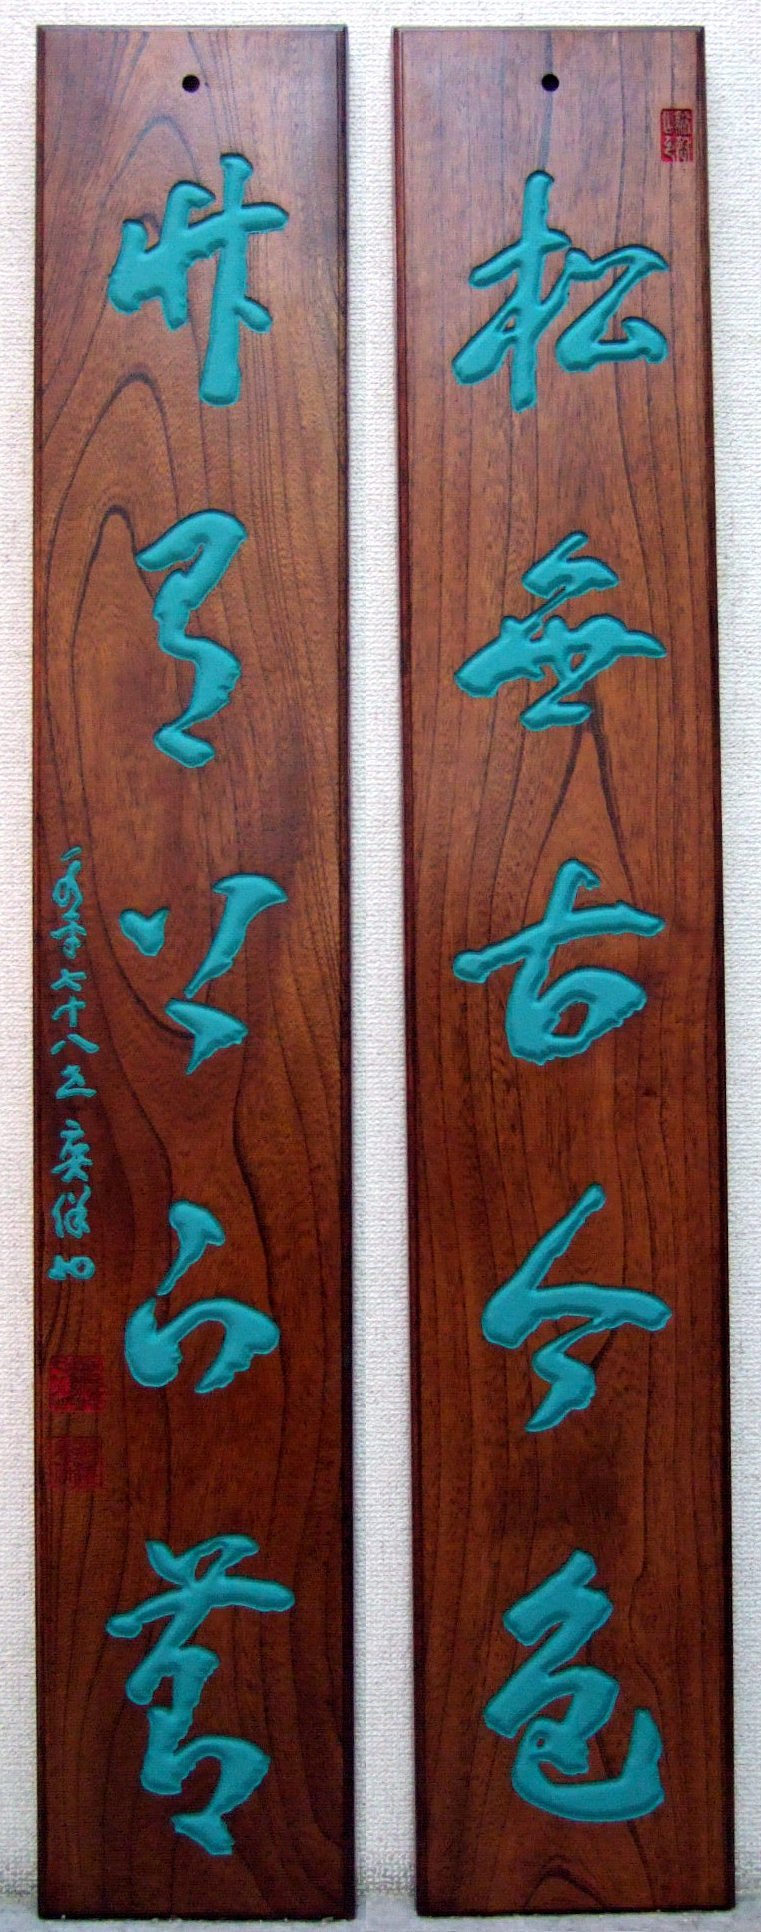 松無古今色
竹有上下節
七十八叟